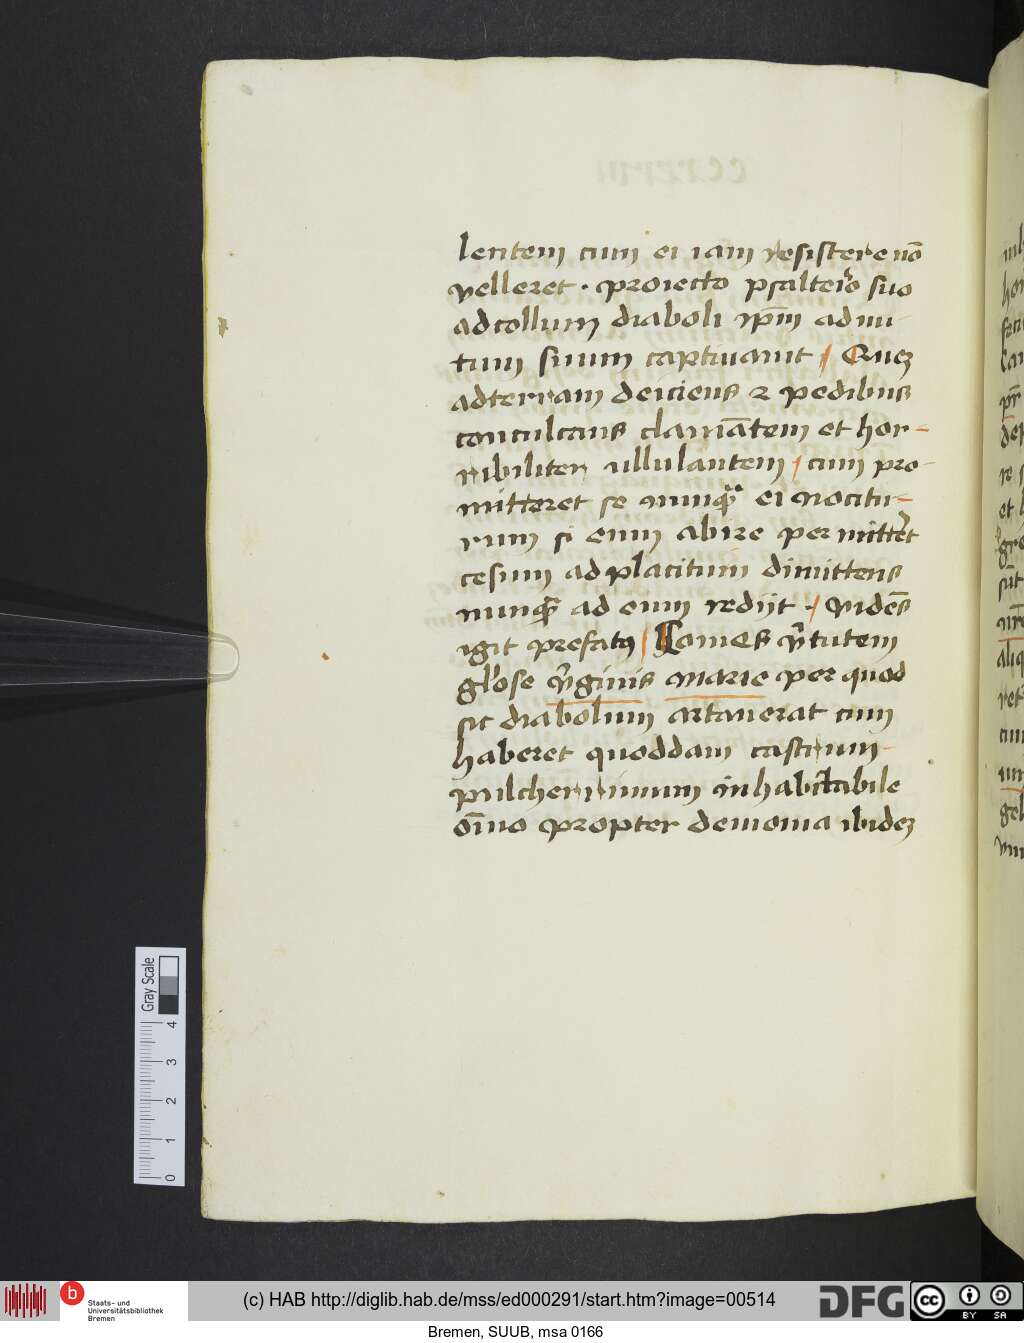 lentem cum ei iam resistere nō
velleret · proiecto psalterio suo
ad collum diaboli ip̄m ad nu
tum suum captiuauit / Quez
ad terram deiciens ⁊ pedibus
conculcans clamātem et hor-
ribiliter ullulantem / cum pro-
mitteret se nunqͣ ei nocitu-
rum si eum abire permitte͛t
cesum ad placitum dimittens
nunqͣ ad eum redijt · / vidēs
igit prefatꝰ / Comes v̓tutem
gl̓ose v̓ginis marie per quod
sic diabolum artauerat cum
haberet quoddam castrum-
pulcherrimum inhabitabile
oīno propter demonia ibidez
Gray Scale
4
3
2
1
0
b
Staats- und
Universitätsbibliothek
Bremen
(c) HAB http://diglib.hab.de/mss/ed000291/start.htm?image=00514
DFG
cc
BY SA
Bremen, SUUB, msa 0166